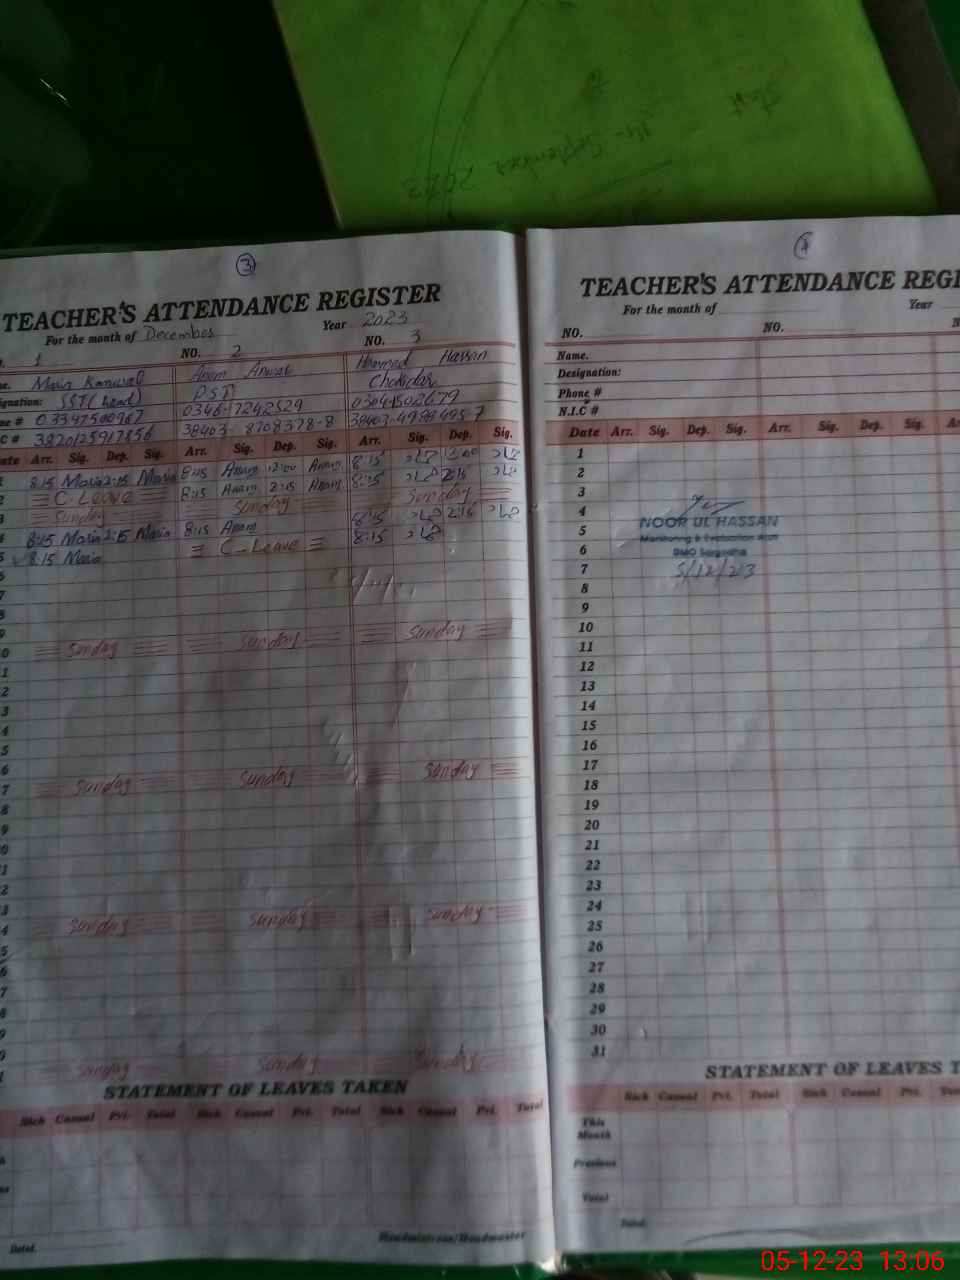 Start
14-September 2023
3
TEACHER'S ATTENDANCE REGISTER
For the month of December Year 2023
1 NO. 2 NO. 3
Maria Kanwal Anam Anwar Hammad Hassan
SST (head) PST Chokidar
03347560967 0346-7242529
38403-8708378-8
Arr. Sig. Dep. Sig. Arr. Sig. Dep. Sig. Arr. Sig. Dep. Sig.
8:15 Maria 2:15 Maria 8:15 Anam 12:00 Anam 8:15 12:00
C-Leave 8:15 Anam 2:15 Anam 8:15 2:15
Sunday Sunday Sunday
8:15 Maria 2:15 Maria 8:15 Anam 8:15 2:15
8:15 Maria C-Leave 8:15
Sunday Sunday Sunday
Sunday Sunday Sunday
Sunday Sunday Sunday
Sunday Sunday Sunday
STATEMENT OF LEAVES TAKEN
Sick Casual Pri. Total Sick Casual Pri. Total Sick Casual Pri. Total
Dated.
Headmistress/Headmaster
4
TEACHER'S ATTENDANCE REGI
For the month of Year
NO. NO.
Name.
Designation:
Phone #
N.I.C #
Date Arr. Sig. Dep. Sig. Arr. Sig. Dep. Sig.
1
2
3
4
5
6
7
8
9
10
11
12
13
14
15
16
17
18
19
20
21
22
23
24
25
26
27
28
29
30
31
NOOR UL HASSAN
Monitoring & Evaluation Asst
DMO Sargodha
5/12/23
STATEMENT OF LEAVES T
Sick Casual Pri. Total Sick Casual Pri.
This
Month
Previous
Total
Dated.
05-12-23 13:06